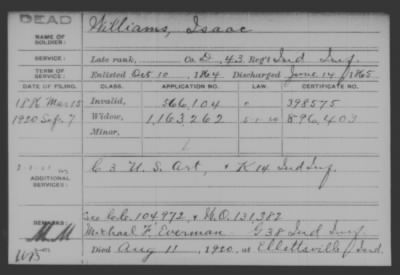 DEAD
NAME OF SOLDIER: Williams, Isaac
SERVICE: Late rank, Co. D, 43 Reg't Ind Inf.
TERM OF SERVICE: Enlisted Oct 10, 1864 Discharged June 14, 1865
DATE OF FILING. CLASS. APPLICATION NO. LAW. CERTIFICATE NO.
Mar 15 Invalid, 566,104 398575
1920 Sep. 7 Widow, 1,163,262 896,403
Minor,
ADDITIONAL SERVICES: C 3 U.S. Art, & K 14 Ind Inf.
REMARKS: C.C. 104,972, & W.O. 131,382
Michael F. Everman G 38 Ind Inf.
Died Aug 11, 1920, at Ellettsville, Ind.